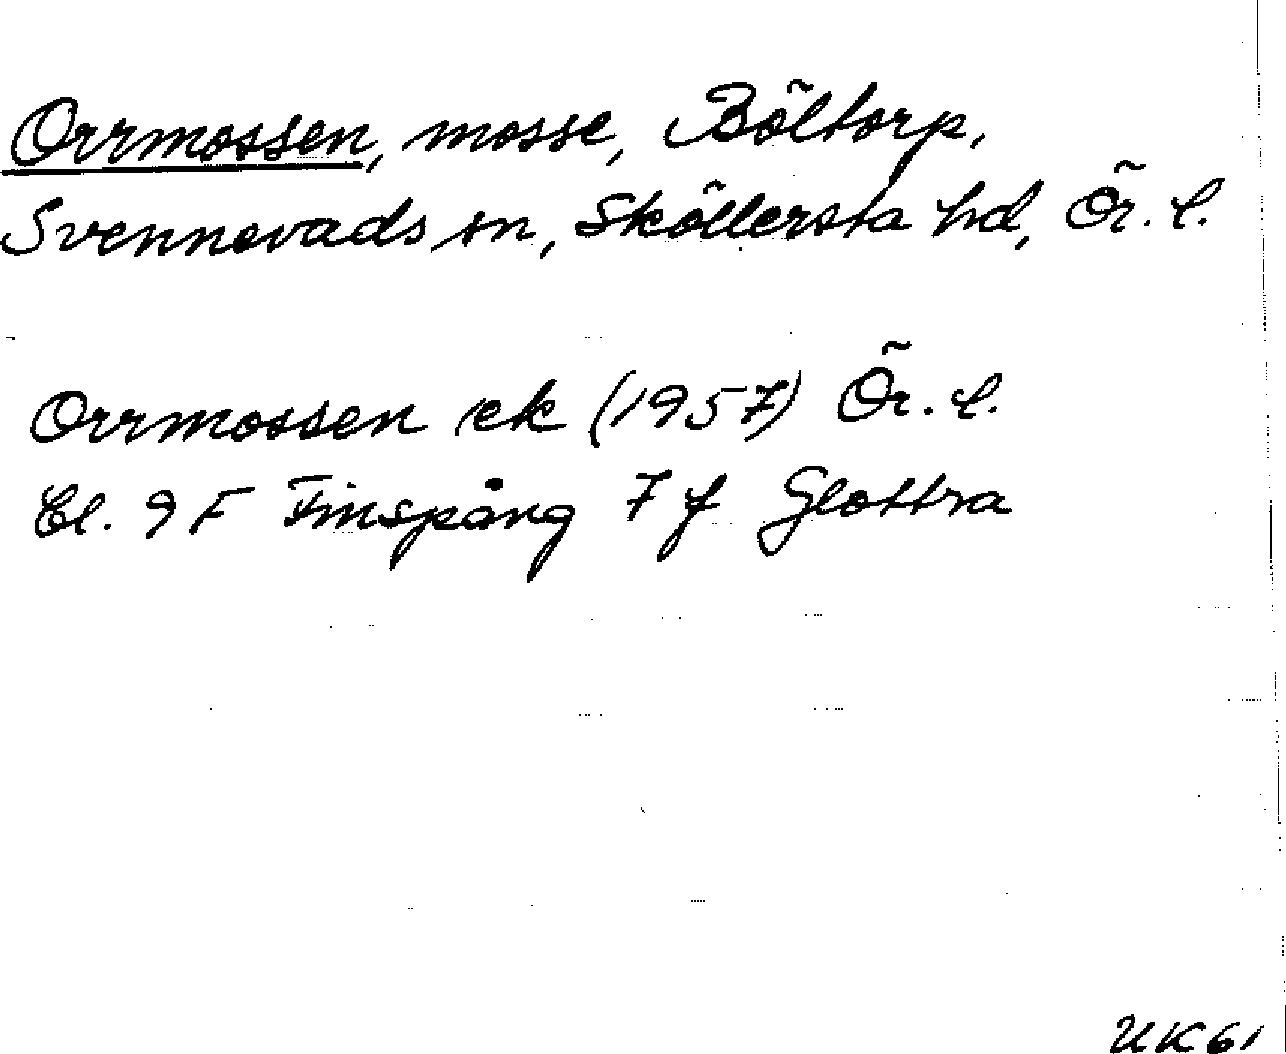 Orrmossen, mosse, Böltorp,
Svennevads sn, Sköllersta hd, Ör. l.
Orrmossen ek (1957) Ör. l.
Bl. 9 F Finspång 7 f Glottra
UK61